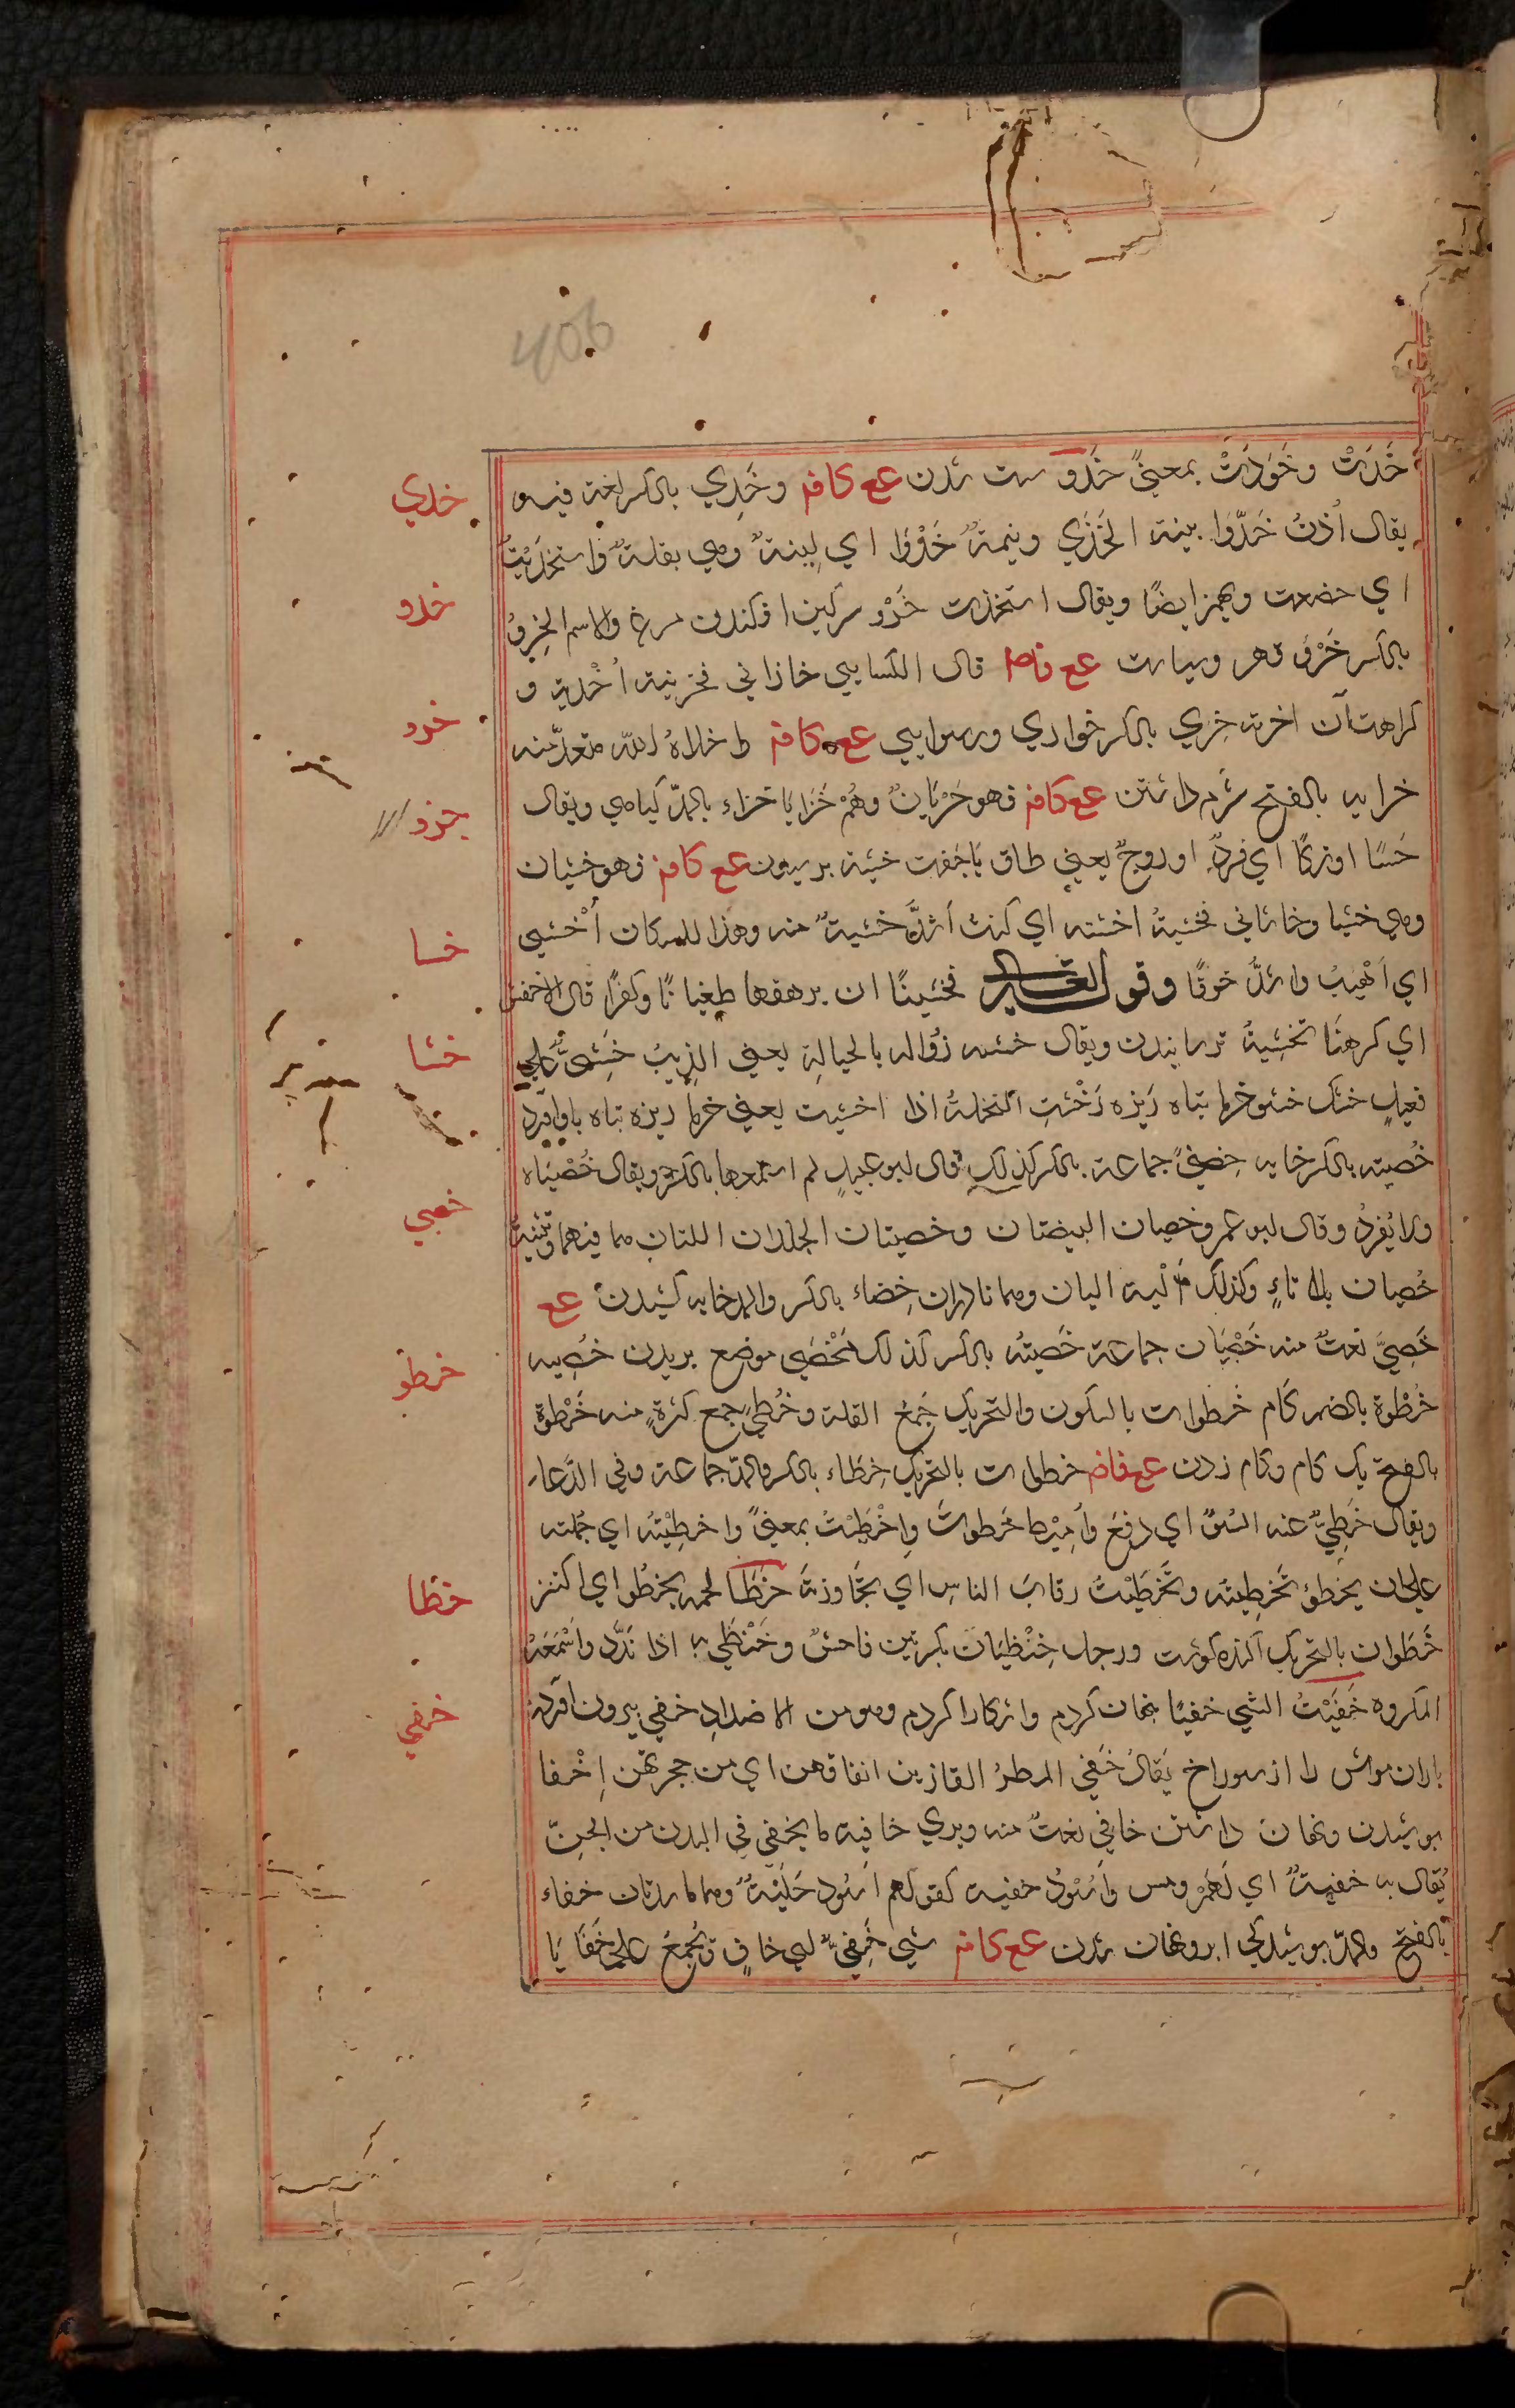 406
خَدَتْ وخَوَدَتْ بمعنىً خَذَو ست شدن ع ع كافه وخَذِي بالكسر لغة فيه
يقال أذنٌ خَذْوَا بينة الخَذَي وينمةٌ خَذْوَا اي لينةٌ وهي بقلةٌ واستخذيتُ
اي خضعت وهمز ايضًا ويقال استخذت خَرْو سركين افكندن مرغ والاسم الخِرؤُ
بالكسر خَزْو قهر وسياست ع ع فاص قال الكسايي خازاني فخزيته أخْزيه و
كراهت آن اخرته خِزي بالكسر خواري ورسوايي ع ع كافه اخلاهُ الله متعدٍّ منه
خرايه بالفتح شرم داشتن ع ع كافه فهو خَزْيَانٌ وهُمْ خَزَايَا خزاء بالمدّ كياهي ويقال
خَسًا اوزكًا اي فردٌ او زوجٌ يعني طاق يَا جَفت خشية ترسيدن ع ع كافه فهو خشيان
وهي خشيا وخاشاني فخشيتُهُ اخشيه اي كنتُ أشدَّ خشيةٌ منه وهذا المكان أخْشي
اي أهْيَبُ واشدُّ خوفًا وقوله تعالى فخشينًا ان يرهقهما طغيانًا وكفرًا قال الاخفش
اي كرهنَا تخشيةُ ترسانيدن ويقال خش ذؤاله بالحيالة يعني الذيبُ خَشِيٌّ علي
فعيلٍ خشك خشو خرما تباه ريزه خشتِ النخلةُ اذا اخشيت يعني خرما ريزه تباه باوآورد
خُصيته بالكسر خايه خِصىً جماعة بالكسر كذلك قال ابو عبيدٍ لم اسمعها بالكسر ويقال خُصْيَاه
ولا يُفردُ وقال ابو عمرو خصيان البيضتان وخصيتان الجلدان اللتان هما فيهما وتثنيةُ
خُصيان بلا تاءٍ وكذلك ألية اليان وهما نادران خِصاء بالكسر والمد خايه كشيدن ع ع
خَصِيٌّ نعتٌ منه خُصْيَان جماعة خَصيتُه بالكسر كذلك مَخْصي موضع بريدن خصيه
خُطْوَة بالضم كام خُطوات بالسكون والتحريك جَمعُ القلة وخُطي جمع كثرةٍ منه خَطْوة
بالفتح يك كام وكام زدن ع ع فاضه خطوات بالتحريك خِطاء بالكسر والمد جماعة وفي الدعا
ويقال خُطِيٌّ عنه السُّوْ اي دفع وأُمِيْط خَطَوتُ واخْطَيْتُ بمعنىً واخطيْتُه اي حملته
علي ان يخطو تَخطيته وتَخَطَّيْتُ رقابَ الناسِ اي تجاوزتَه خَظَا لحمه يخظُوا اي اكتنز
خَظَوان بالتحريك آكنده كوشت ورجل خِنْظيَان بكسرتين فاحشٌ وخَنْظي به اذا نَدَّد واسْمَعَهُ
المكروه خَفَيْتُ الشي خفيًا نهان كردم واشكارا كردم وهو من الاضدادِ خفي بيرون آوردن
باران موش را از سوراخ يُقالُ خَفي المطرُ الفازَ من انفاقهن اي من جحرتهن إخْفا
بوشيدن ونهان داشتن خافي نعتٌ منه وپري خافيه ما يخفي في البدن من الجنّ
يُقال به خفيةٌ اي لَمَمٌ ومس وأسودُ خفيه كقولهم أسود حَليةٌ وهما ماسدتان خفاء
بالفتح والمدّ بوشيدكي ابر ونهان شدن ع ع كافه شي خَفِيٌّ اي خافٍ ويُجمَعُ علي خَفَايَا
خذي
خذو
خرو
خزو
خسا
خشا
خصي
خطو
خظا
خفي